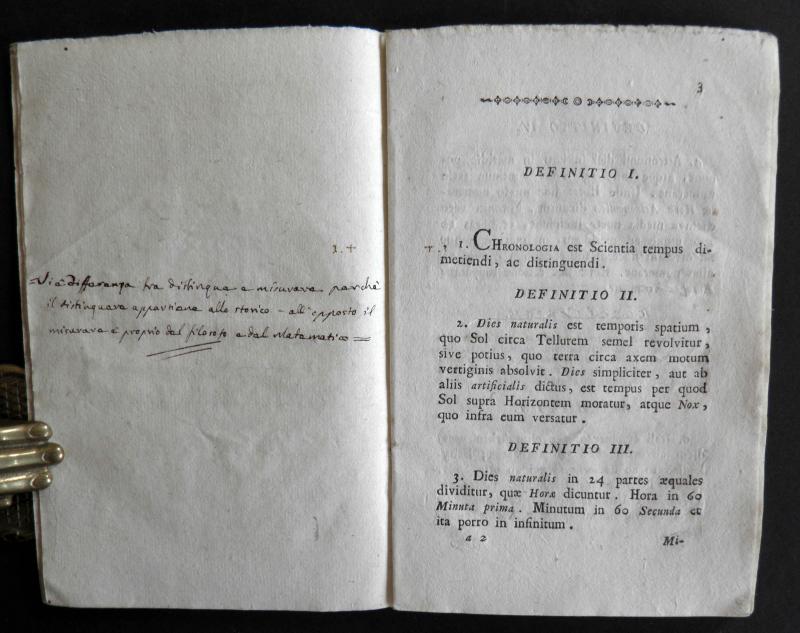 1.+
Vi è differenza tra distingue e misurare perchè
il distinguere appartiene allo storico - all'opposto il
misurare è proprio del filosofo e dal Matematico =
3
DEFINITIO I.
+. 1. CHRONOLOGIA est Scientia tempus di-
metiendi, ac distinguendi.
DEFINITIO II.
2. Dies naturalis est temporis spatium,
quo Sol circa Tellurem semel revolvitur,
sive potius, quo terra circa axem motum
vertiginis absolvit. Dies simpliciter, aut ab
aliis artificialis dictus, est tempus per quod
Sol supra Horizontem moratur, atque Nox,
quo infra eum versatur.
DEFINITIO III.
3. Dies naturalis in 24 partes æquales
dividitur, quæ Horæ dicuntur. Hora in 60
Minuta prima. Minutum in 60 Secunda et
ita porro in infinitum.
a 2
Mi-